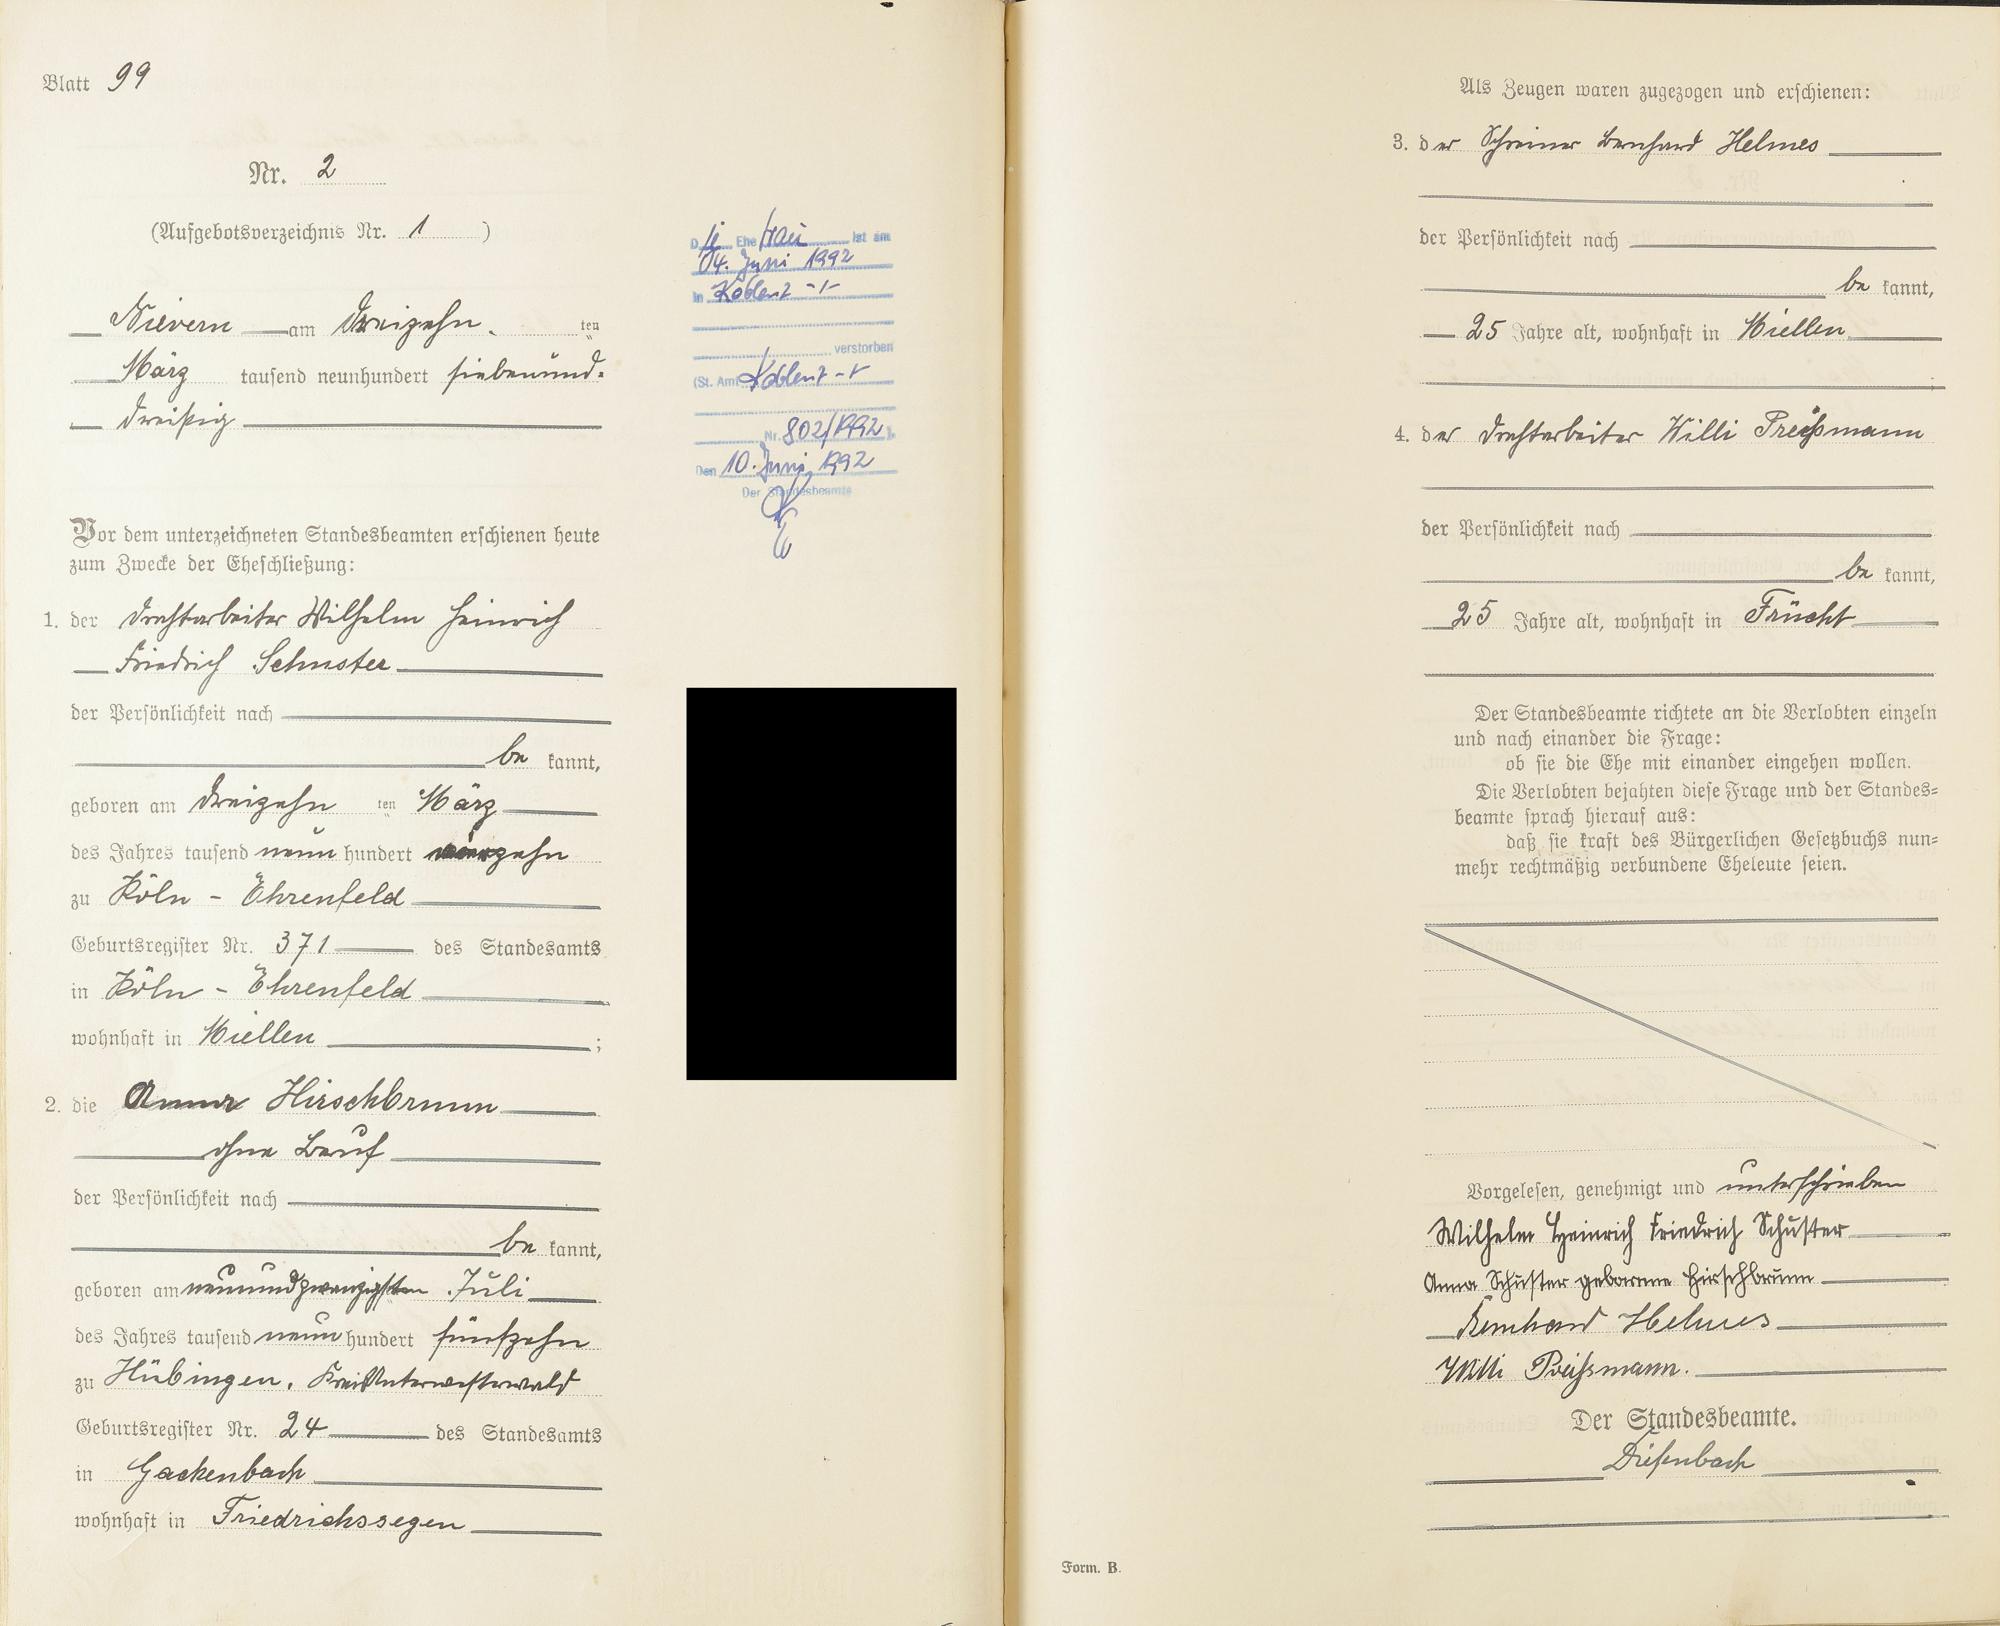 Blatt 99
Nr. 2
(Aufgebotsverzeichnis Nr. 1 )
Nievern am dreizehn ten
März tausend neunhundert siebenund-
dreißig
Vor dem unterzeichneten Standesbeamten erschienen heute
zum Zwecke der Eheschließung:
1. der Drahtarbeiter Wilhelm Heinrich
Friedrich Schuster
der Persönlichkeit nach
be kannt,
geboren am dreizehn ten März
des Jahres tausend neun hundert vierzehn
zu Köln - Ehrenfeld
Geburtsregister Nr. 371 des Standesamts
in Köln - Ehrenfeld
wohnhaft in Miellen ;
2. die Anna Hirschbrunn
ohne Beruf
der Persönlichkeit nach
be kannt,
geboren am neunundzwanzigsten Juli
des Jahres tausend neun hundert fünfzehn
zu Hübingen, Kreis Unterwesterwald
Geburtsregister Nr. 24 des Standesamts
in Gackenbach
wohnhaft in Friedrichssegen
Die Ehefrau ist am
04. Juni 1992
in Koblenz
verstorben
(St. Amt Koblenz
Nr. 802/1992 ).
Den 10. Juni 1992
Der Standesbeamte
Als Zeugen waren zugezogen und erschienen:
3. der Schreiner Bernhard Helmes
der Persönlichkeit nach
be kannt,
25 Jahre alt, wohnhaft in Miellen
4. der Drahtarbeiter Willi Preißmann
der Persönlichkeit nach
be kannt,
25 Jahre alt, wohnhaft in Frücht
Der Standesbeamte richtete an die Verlobten einzeln
und nach einander die Frage:
ob sie die Ehe mit einander eingehen wollen.
Die Verlobten bejahten diese Frage und der Standes-
beamte sprach hierauf aus:
daß sie kraft des Bürgerlichen Gesetzbuchs nun-
mehr rechtmäßig verbundene Eheleute seien.
Vorgelesen, genehmigt und unterschrieben
Wilhelm Heinrich Friedrich Schuster
Anna Schuster geborene Hirschbrunn
Bernhard Helmes
Willi Preißmann.
Der Standesbeamte.
Diefenbach
Form. B.